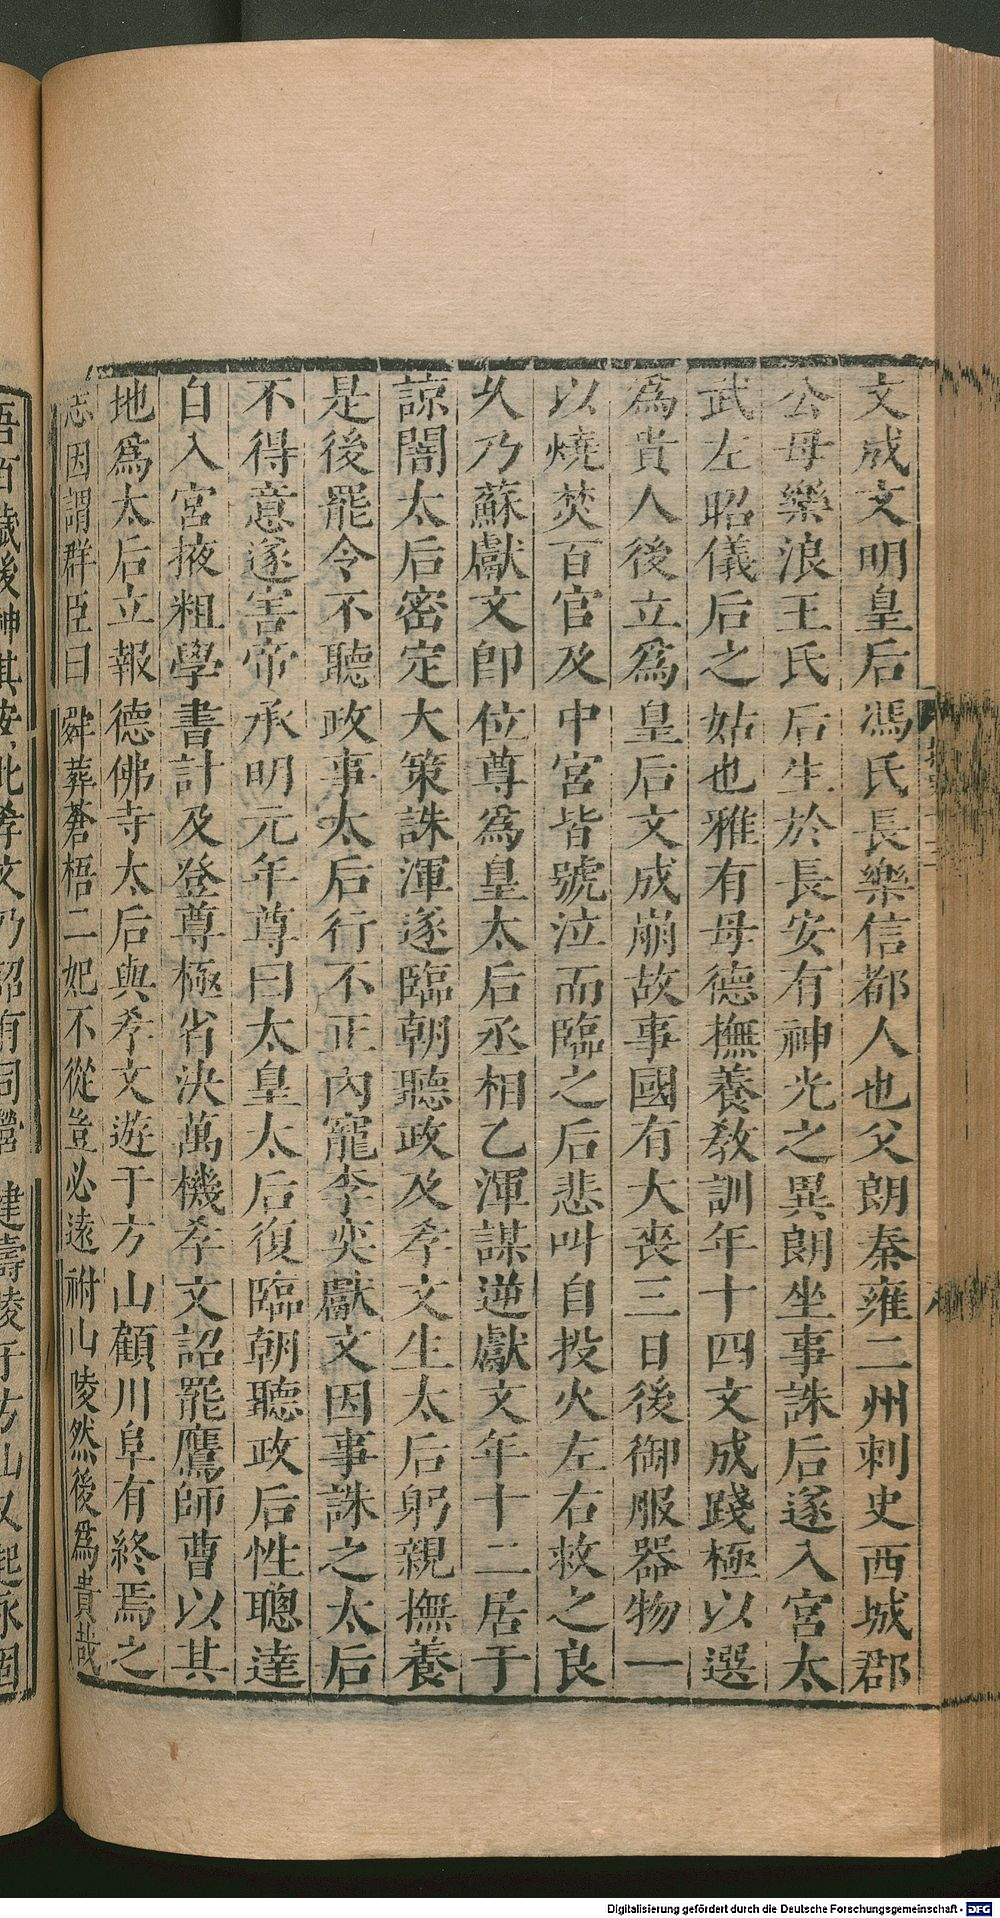 文成文明皇后馮氏長樂信都人也父朗秦雍二州刺史西城郡
公母樂浪王氏后生於長安有神光之異朗坐事誅后遂入宮太
武左昭儀后之姑也雅有母德撫養教訓年十四文成踐極以選
爲貴人後立爲皇后文成崩故事國有大喪三日後御服器物一
以燒焚百官及中宮皆號泣而臨之后悲叫自投火左右救之良
乆乃蘇獻文即位尊爲皇太后丞相乙渾謀逆獻文年十二居于
諒闇太后密定大策誅渾遂臨朝聽政及孝文生太后躬親撫養
是後罷令不聽政事太后行不正內寵李奕獻文因事誅之太后
不得意遂害帝承明元年尊曰太皇太后復臨朝聽政后性聰達
自入宮掖粗學書計及登尊極省決萬機孝文詔罷鷹師曹以其
地爲太后立報德佛寺太后與孝文遊于方山顧川阜有終焉之
志因謂群臣曰舜葬蒼梧二妃不從豈必遠祔山陵然後爲貴哉
吾百歲後神其安此孝文乃詔有司營建壽陵于方山又起永固
Digitalisierung gefördert durch die Deutsche Forschungsgemeinschaft - DFG